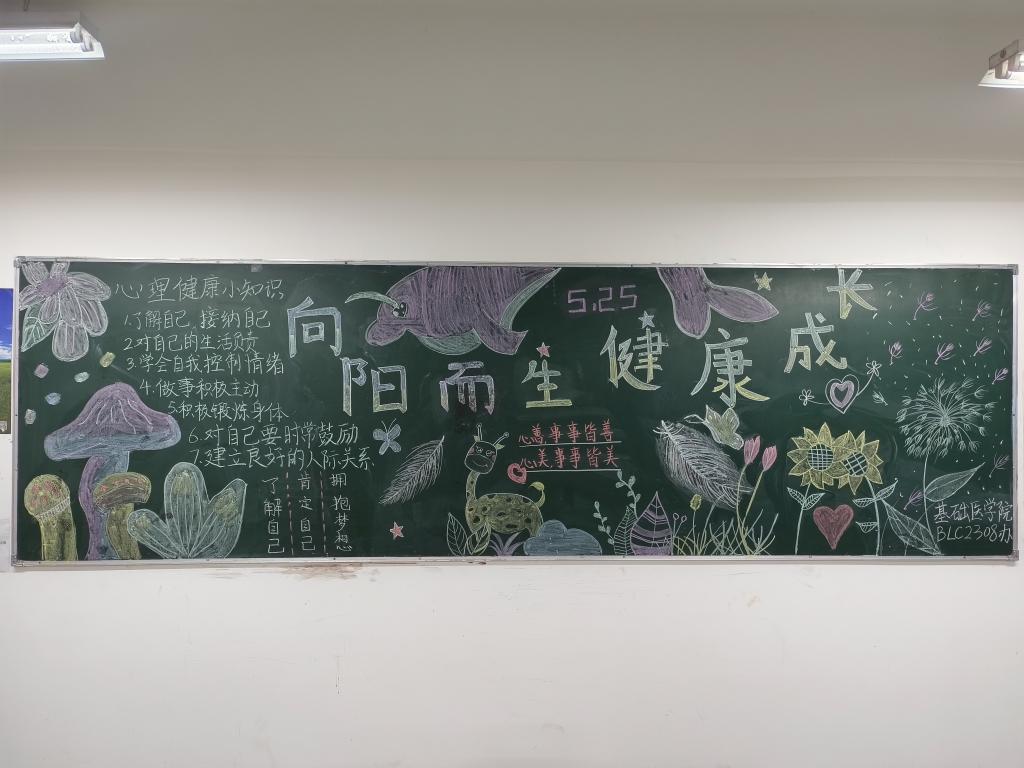 心理健康小知识
1.了解自己 接纳自己
2.对自己的生活负责
3.学会自我控制情绪
4.做事积极主动
5.积极锻炼身体
6.对自己要时常鼓励
7.建立良好的人际关系
了解自己
肯定自己
拥抱梦想
向阳而生
健康成长
5.25
心善事事皆善
心美事事皆美
基础医学院
BLC2308办